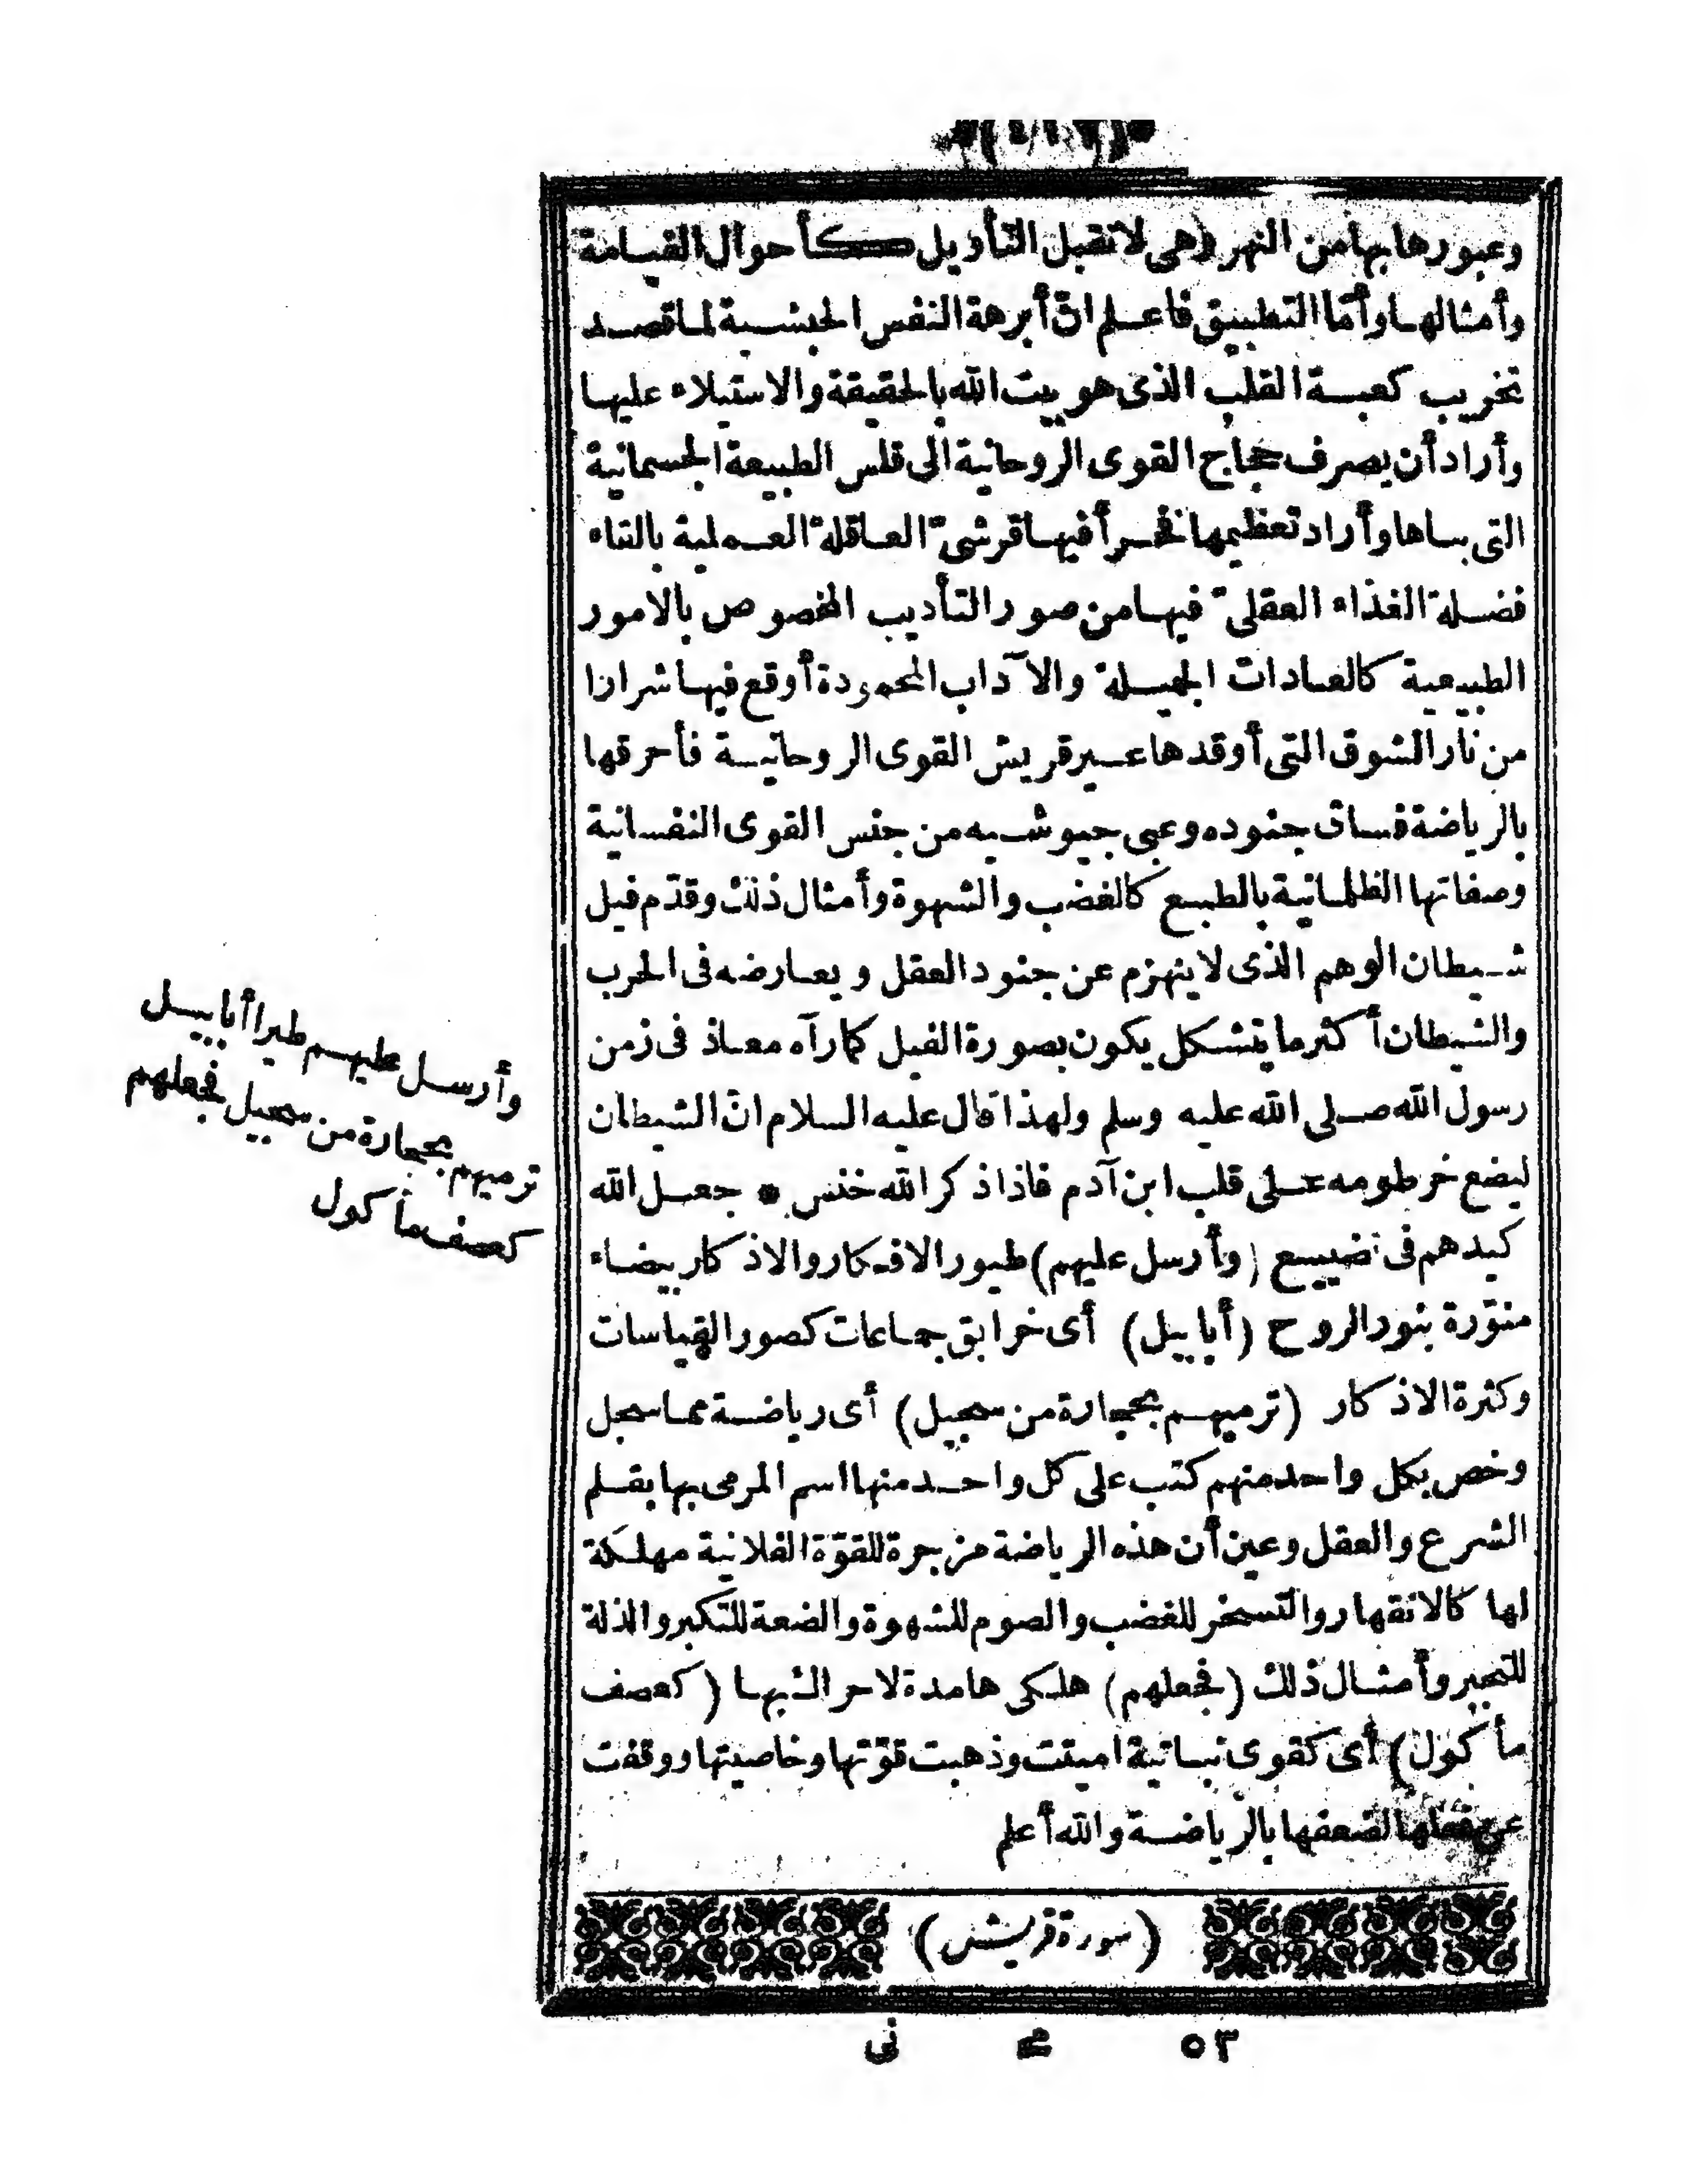 وعبورها بها من النهر وهى لا تقبل التأويل كأحوال القيامة
وأمثالها وأمّا التطبيق فاعلم انّ أبرهة النفس الحبشية لما قصد
تخريب كعبة القلب الذى هو بيت الله بالحقيقة والاستيلاء عليها
وأراد أن يصرف حجاج القوى الروحانية الى قلس الطبيعة الجسمانية
التى بناها وأراد تعظيمها فخرأ فيها قرشىّ العاقلة العملية بالقاء
فضلة الغذاء العقلىّ فيها من صور التأديب المخصوص بالامور
الطبيعية كالعادات الجميلة والآداب المحمودة أوقع فيها شرارا
من نار الشوق التى أوقدها عير قريش القوى الروحانية فأحرقها
بالرياضة فساق جنوده وعبى جيوشه من جنس القوى النفسانية
وصفاتها الظلمانية بالطبع كالغضب والشهوة وأمثال ذلك وقدّم فيل
شيطان الوهم الذى لا ينهزم عن جنود العقل ويعارضه فى الحرب
والشيطان أكثر ما يتشكل يكون بصورة الفيل كما رآه معاذ فى زمن
رسول الله صلى الله عليه وسلم ولهذا قال عليه السلام انّ الشيطان
ليضع خرطومه على قلب ابن آدم فاذا ذكر الله خنس * جعل الله
كيدهم فى تضييع (وأرسل عليهم) طيور الافكار والاذكار بيضاء
منوّرة بنور الروح (أبابيل) أى خرابق جماعات كصور القياسات
وكثرة الاذكار (ترميهم بحجارة من سجيل) أى رياضة مما سجل
وخص بكل واحد منهم كتب على كل واحد منها اسم المرمى بها بقلم
الشرع والعقل وعين أن هذه الرياضة مزجرة للقوّة الفلانية مهلكة
لها كالانقهار والتسخر للغضب والصوم للشهوة والضعة للتكبر والذلة
للتجبر وأمثال ذلك (فجعلهم) هلكى هامدة لا حراك بها (كعصف
مأكول) أى كقوى نباتية اميتت وذهبت قوّتها وخاصيتها ووقفت
عن فعلها لضعفها بالرياضة والله أعلم
(سورة قريش)
٥٣ مح نى
وأرسل عليهم طيرا أبابيل
ترميهم بحجارة من سجيل فجعلهم
كعصف مأكول